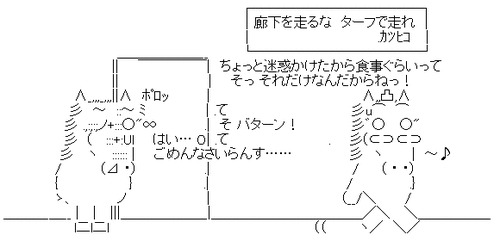 廊下を走るな ターフで走れ
カツヒコ
ちょっと迷惑かけたから食事ぐらいって
そっ それだけなんだからねっ!
ポロッ
て
そ バターン!
はい… て
ごめんなさいらんす……
~♪